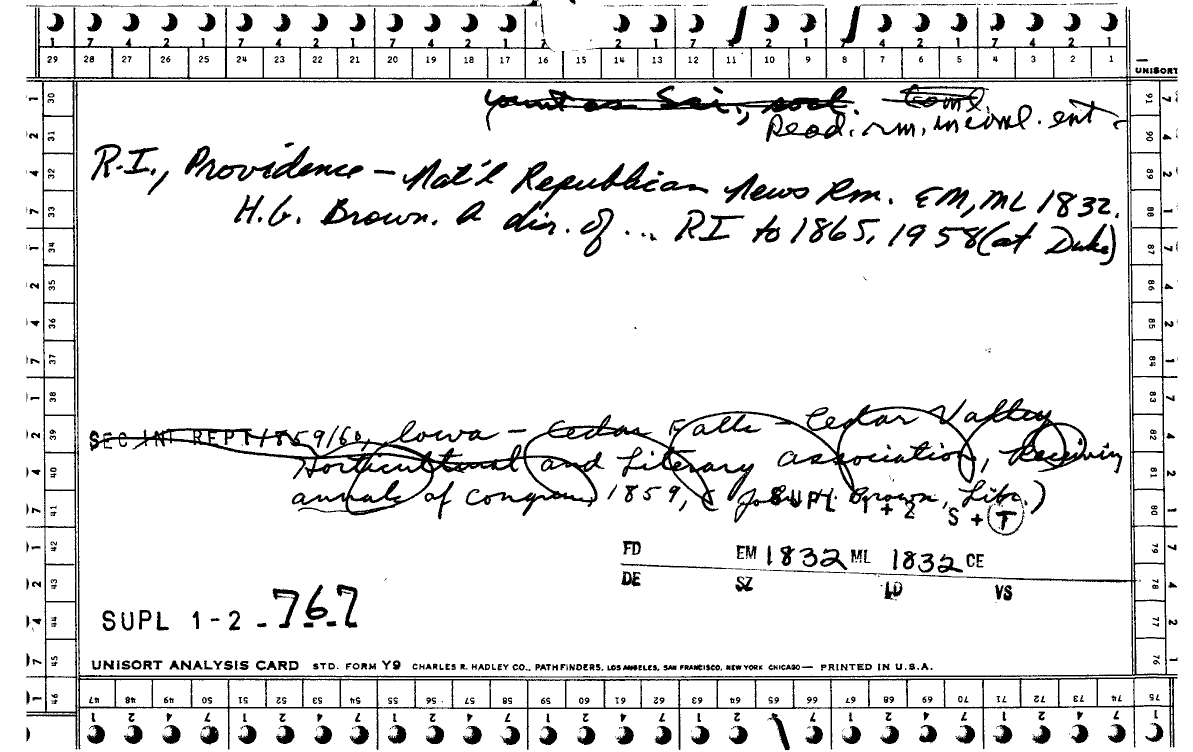 7 4 2 1 7 4 2 1 7 4 2 1 7 2 1 7 4 2 1 7 4 2 1 7 4 2 1
29 28 27 26 25 24 23 22 21 20 19 18 17 16 15 14 13 12 11 10 9 8 7 6 5 4 3 2 1
UNISORT
Read. rm. in coml. ent
R.I., Providence - Nat'l Republican News Rm. EM, ML 1832.
H.G. Brown. A dir. of ... RI to 1865, 1958 (at Duke)
SEC INT REPT 1859/60, Iowa - Cedar Falls - Cedar Valley
Horticultural and Literary Association, Receiving
annals of Congress, 1859, ( Brown, Libr.)
SUPL 1 + 2 S + T
FD EM 1832 ML 1832 CE
DE SZ LD VS
SUPL 1-2 - 767
UNISORT ANALYSIS CARD STD. FORM Y9 CHARLES R. HADLEY CO., PATHFINDERS, LOS ANGELES, SAN FRANCISCO, NEW YORK CHICAGO — PRINTED IN U.S.A.
30 31 32 33 34 35 36 37 38 39 40 41 42 43 44 45 46
91 90 89 88 87 86 85 84 83 82 81 80 79 78 77 76
47 48 49 50 51 52 53 54 55 56 57 58 59 60 61 62 63 64 65 66 67 68 69 70 71 72 73 74 75